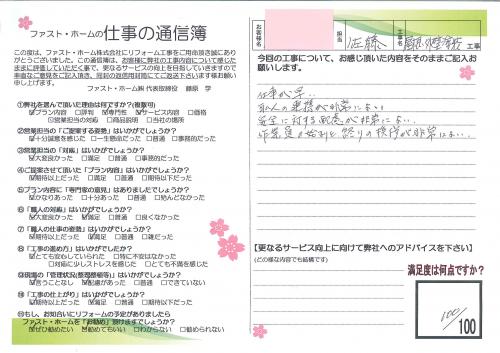 ファスト・ホームの仕事の通信簿
この度は、ファスト・ホーム株式会社にリフォーム工事をご用命頂き誠にあり
がとうございました。この通信簿は、お客様に弊社の工事内容に感じた
ままに評価していただく事で、更なるサービスの向上を目指していきますので
率直なご意見をご記入頂き、同封の返信用封筒にてご返送下さいます様お願い
申し上げます。
ファスト・ホーム㈱ 代表取締役 藤原 学
①弊社を選んで頂いた理由は何ですか?(複数可)
☑プラン内容 □評判 ☑専門性 ☑サービス内容 □価格
□担当者の対応 □商品説明 □当社の標榜
②営業担当の「ご提案する姿勢」はいかがでしょうか?
☑十分誠意を感じた □一生懸命だった □普通 □事務的だった
③営業担当の「対応」はいかがでしょうか?
☑大変良かった □満足 □普通 □事務的だった
④ご提案させて頂いた「プラン内容」はいかがでしょうか?
☑期待以上だった □満足 □普通 □期待以下だった
⑤プラン内容に「専門家の意見」はありましたでしょうか?
☑かなりあった □十分あった □普通 □殆んどなかった
⑥「職人の対応」はいかがでしょうか?
☑大変良かった ☑満足 □普通 □良くなかった
⑦「職人の仕事の姿勢」はいかがでしょうか?
☑期待以上だった □満足 □普通 □雑だった
⑧「工事の進め方」はいかがでしたか?
☑とても安心していられた □特に不安はなかった
□対応に少しストレスを感じた □とても不満を感じた
⑨現場の「管理状況(整理整頓等)」はいかがでしょうか?
☑言うことなし ☑配慮があった □普通 □できていない
⑩「工事の仕上がり」はいかがでしょうか?
☑期待以上だった ☑満足 □普通 □期待以下だった
⑪もし、お知り合いにリフォームの予定がありましたら
ファスト・ホームを「お勧め」頂けますでしょうか?
☑ぜひ勧めたい ☑勧めてもいい □わからない □勧められない
お客様名
担当
佐藤
工事名
屋根・外壁塗装
工事
今回の工事について、お感じ頂いた内容をそのままご記入お
願いします。
仕事が早い。
職人の連携が非常によい。
安全に対する配慮が非常によい。
作業員の
【更なるサービス向上に向けて弊社へのアドバイスを下さい】
(どの様な内容でも結構です)
満足度は何点ですか?
100/100